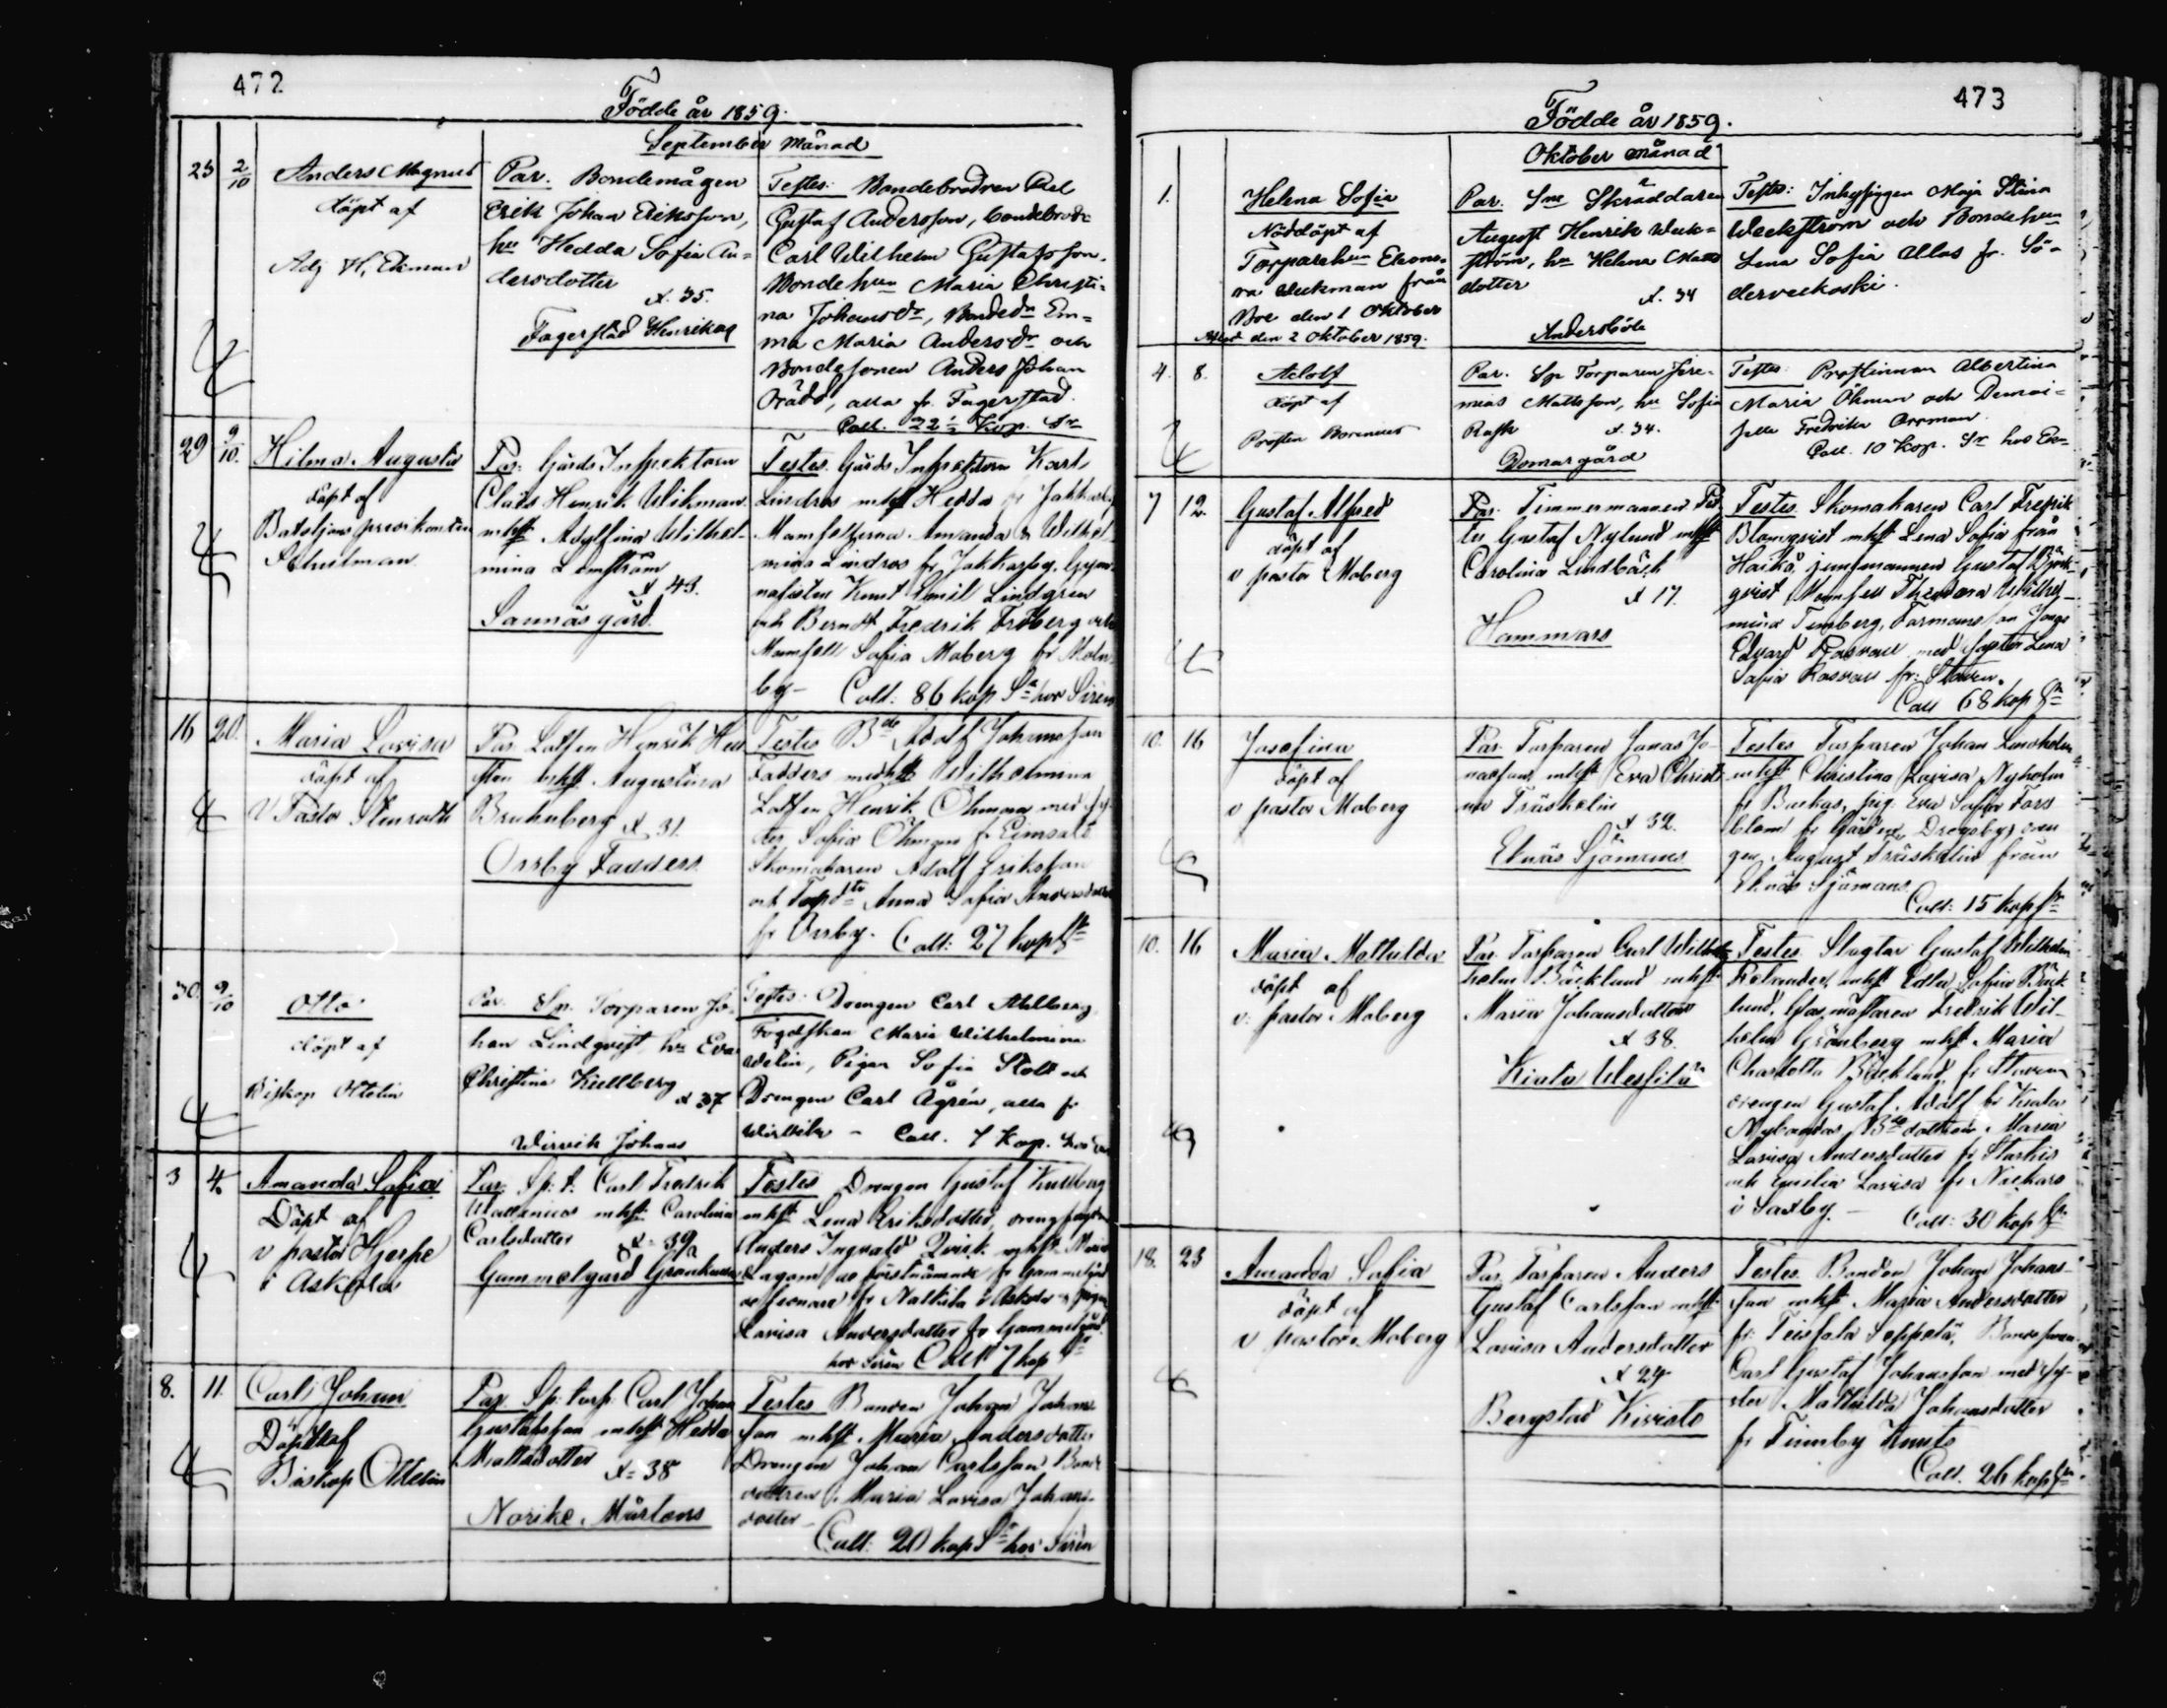 472
Födde år 1859.
September Månad
23 2/10 Anders Magnus
döpt af
Adj H, Ekman
Par. Bondemågen
Erik Johan Eriksson,
hu Hedda Sofia An=
dersdotter
x. 35.
Fagerstad Henrikas
Testes: Bondebrodren
Gustaf Andersson, bondebrodr
Carl Wilhelm Gustafsson.
Bonde hun Maria Christi=
na Johansdr, Bondedn Em=
ma Maria Andersdr och
Bondesonen Anders Johan
alla fr. Fagerstad.
Coll. 22 1/2 Kop. Sr
29 9/10. Hilma Augusta
döpt af
Bataljons predikanten
Schulman
Par: Gårds Inspektorn
Claës Henrik Wikman
mhst Adolfina Wilhel-
mina Lemström
x 43.
Sannäs gård
Testes. Gårds Inspektoren Karl
Lindros mhst Hedda fr Jakkarby
Mamsellerna Amanda & Wilhel-
mina Lindros fr Jakkarby, Gym-
nasisten Knut Emil Lindgren
och Berndt Fredrik Fröberg och
Mamsell Sofia Moberg fr
by - Coll. 86 kop Sr hos Sirén
16 20. Maria Lovisa
döpt af
V Pastor Stenroth
Par Lotsen Henrik
mhst Augustina
Bruhnberg x 31.
Orrby Fadders
Testes Bde Adolf Johansson
Fadders med hst Wilhelmina
Lotsen Henrik Öhman med sy-
ster Sofia Öhman fr Eimsalö
Skomakaren Adolf Eriksson
och Anna Sofia Andersdotter
fr Orrby. Coll: 27 kop Sr
30. 9/10 Otto
döpt af
Biskop Ottelin
Par. Sp. Torparen Jo-
han Lindqvist, hu Eva
Christina Kullberg
x 37
Wirvik Johans
Testes: Drengen Carl Ahlberg
Maria Wilhelmina
Welin, Pigan Sofia Stolt och
Drengen Carl Ågrén, alla fr
Wirvik - Coll. 7 Kop.
3 4. Amanda Sofia
Döpt af
v pastor Hjerpe
i Askola
Par. Sp. t. Carl Fredrik
Wallenius mhst. Carolina
Carlsdotter x= 39
Gammelgård
Testes Drengen Gustaf Kullberg
mhst Lena Eriksdotter,
Anders Ingvald Qvist mhst Maria
fr Gammelgård
fr Nalkila i Askola
Lovisa Andersdotter fr Gammelgård
hos Sirén Coll 7 kop Sr
8. 11. Carl Johan
Döpt af
Biskop Ottelin
Par. Sp. torp. Carl Johan
Gustafsson mhst Hedda
Mattsdotter
x= 38
Norike Mårtens
Testes Bonden Johan Johans
son mhst Maria Andersdotter
Drengen Johan Carlsson Bonde
dottren Maria Lovisa Johans-
dotter -
Coll: 20 kop Sr hos Sirén
473
Födde år 1859.
Oktober Månad
1. Helena Sofia
Nöddöpt af
Torparehun Eleono-
ra Weckman från
Boe den 1 Oktober
Afled den 2 Oktober 1859.
Par. Skräddaren
August Henrik Weck=
ström, hu Helena Matts
dotter
x. 34
Andersböle
Testes: Inhysingen Maja Stina
Weckström och Bondehun
Lena Sofia allas fr. Sö-
derveckoski.
4. 8. Adolf
döpt af
Prosten Borenius
Par. Sp Torparen Jere-
mias Mattsson, hu Sofia
Rask x. 34.
Domargård
Testes: Prostinnan Albertina
Maria Öhman och Demoi-
selle Fredrika Orrman
Coll. 10 Kop. Sr hos
7 12. Gustaf Alfred
döpt af
v pastor Moberg
Par. Timmermannen Pet
ter Gustaf Nylund mhst
Carolina Lindbäck
x 17.
Hammars
Testes. Skomakaren Carl Fredrik
Blomqvist mhst Lena Sofia från
Haikå, jungmannen Gustaf Björk-
qvist, Mamsell Theodora Wilhel-
mina Tenberg,
Edvard Rosvall med syster Lena
Sofia Rosvall fr. Staden.
Coll 68 kop Sr
10. 16 Josefina
döpt af
v pastor Moberg
Par. Torparen Jonas Jo-
nasson, mhst Eva Christi
na Träskelin
x 32.
Eknäs Sjömans
Testes Torparen Johan Lindholm
mhst Christina Lovisa Nyholm
fr Backas, pig: Eva Sofia Fors
blom fr Gården, Drägsby, dren
gen August Träskelin från
Eknäs Sjömans
Coll: 15 kop Sr
10. 16 Maria Mathilda
döpt af
v. pastor Moberg
Par. Torparen Carl Wil
helm Bäcklund mhst
Maria Johansdotter
x 38.
Kiala
Testes. Slagtar Gustaf Wilhelm
Helander, mhst Edla Sofia Bäck
lund, Fredrik Wil-
helm Grönberg mhst Maria
Charlotta Bäcklund, fr Staden
drengen Gustaf Adolf fr Kiala
Nybondas Bdedottren Maria
Lovisa Andersdotter fr Starkis
och Emilia Lovisa fr Nickars
i Saxby. - Coll: 30 kop Sr
18. 23 Amanda Sofia
döpt af
v pastor Moberg
Par. Torparen Anders
Gustaf Carlsson mhst
Lovisa Andersdotter
x 24
Bergstad Kivistö
Testes. Bonden Johan Johans-
son mhst Maria Andersdotter
fr. Teissala Seppälä, Bondesonen
Carl Gustaf Johansson med sy-
ster Mathilda Johansdotter
fr Finnby Knuts
Coll. 26 kop Sr